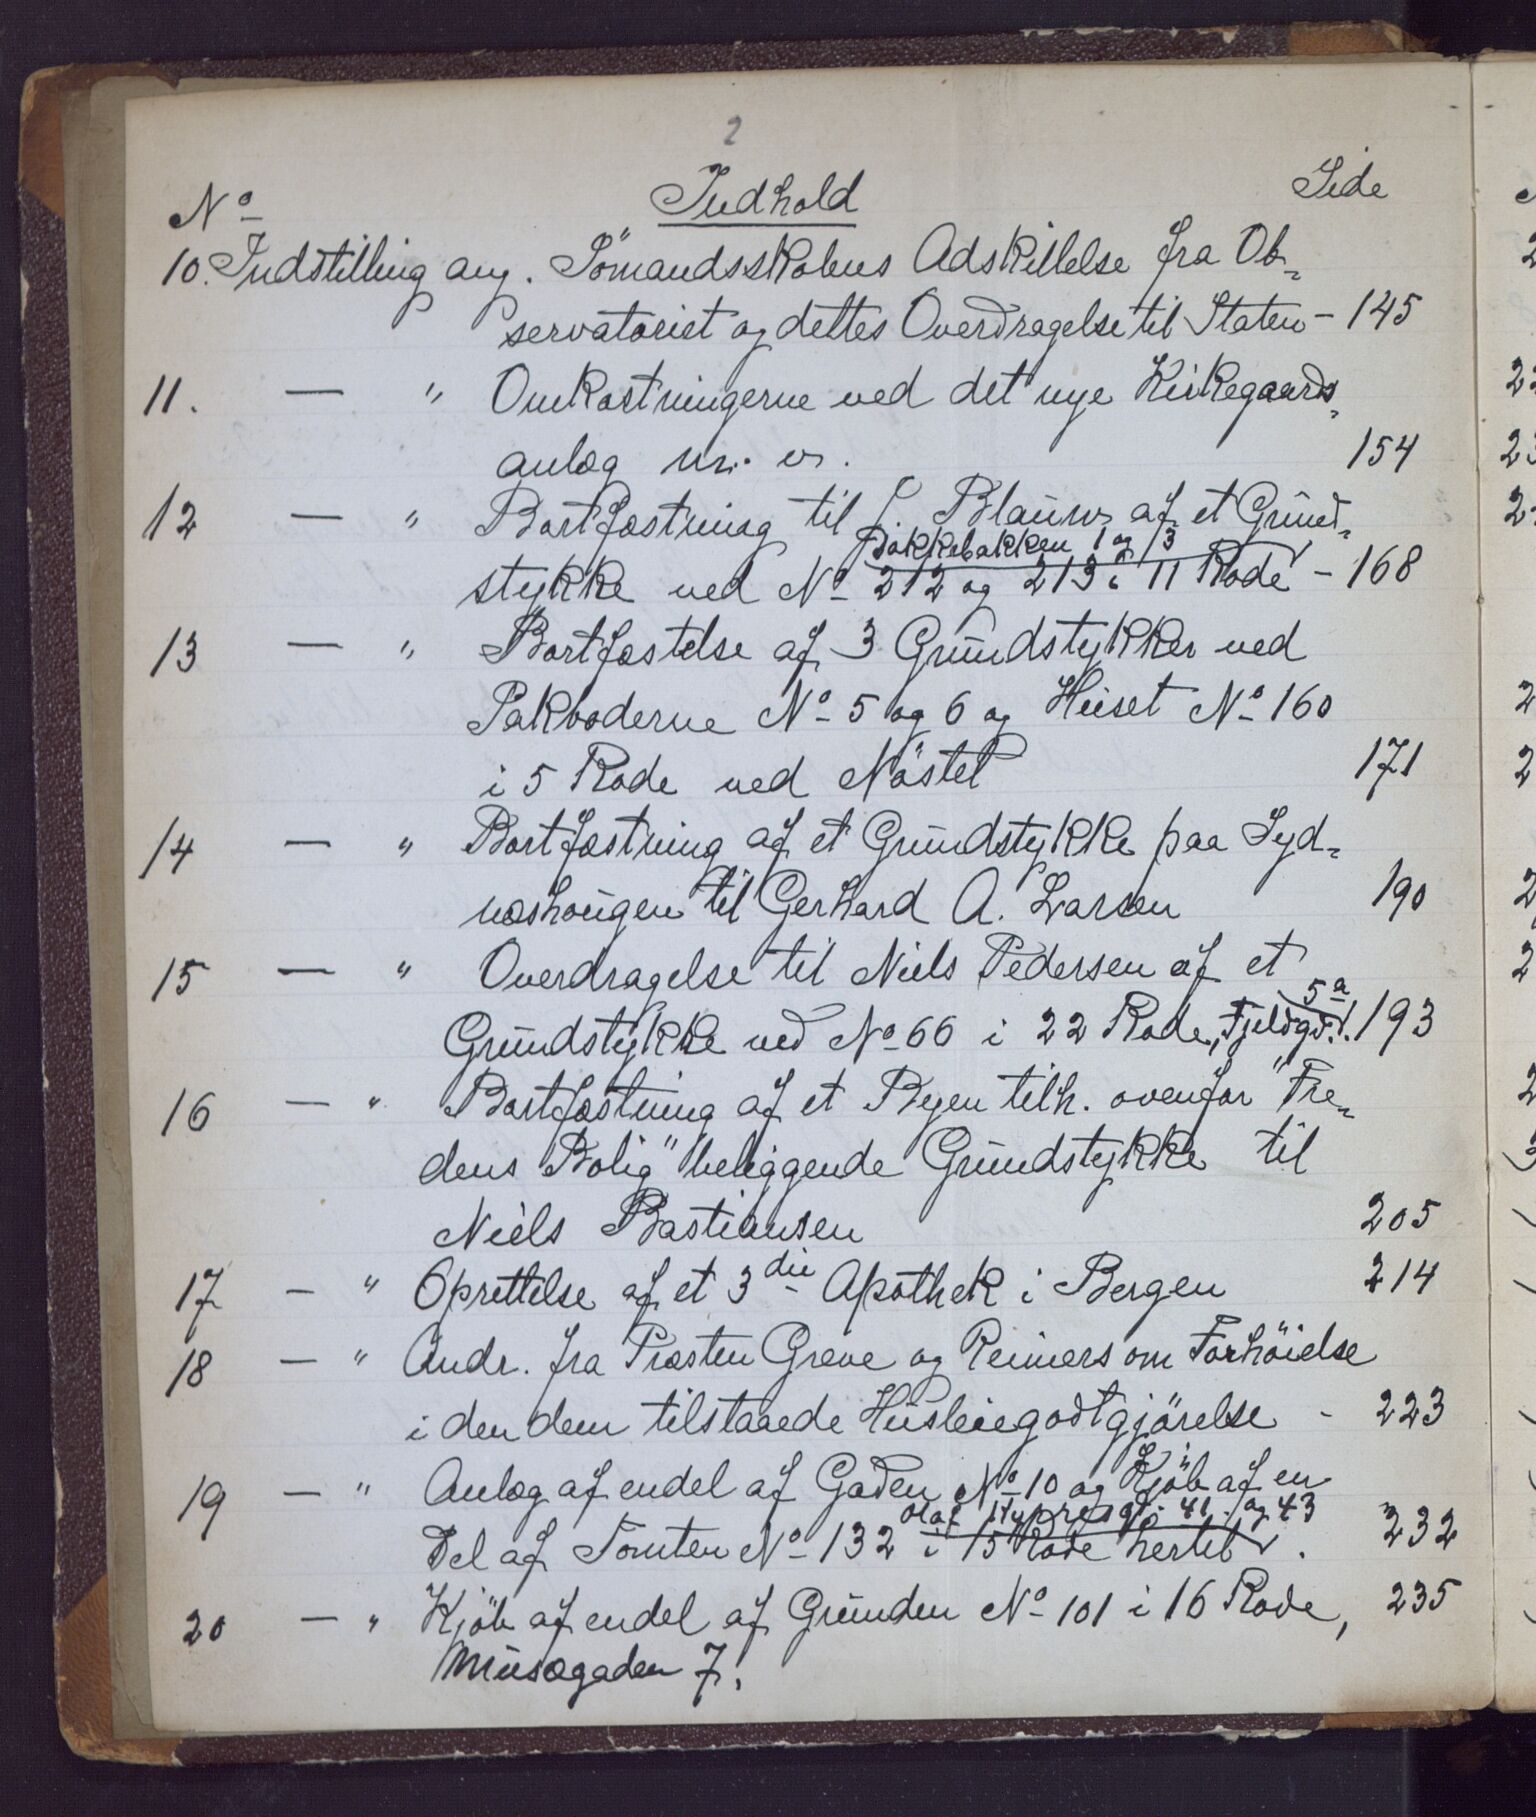 2
No Indhold Side
10. Indstilling ang. Sömandsskolens Adskillelse fra Ob-
servatoriet og dettes Overdragelse til Staten - 145
11. — " Omkostningerne ved det nye Kirkegaards-
anlæg m. v. 154
12 — " Bortfæstning til J. Blauw af et Grund-
Bakkebakken 1 og 3
stykke ved No 212 og 213 i 11 Rode - 168
13 — " Bortfæstelse af 3 Grundstykker ved
Pakboderne No 5 og 6 og Huset No 160
i 5 Rode ved Nöstet 171
14 — " Bortfæstning af et Grundstykke paa Syd-
næshougen til Gerhard A. Larsen 190
15 — " Overdragelse til Niels Pedersen af et
5a
Grundstykke ved No 66 i 22 Rode, Fjeldgd. 193
16 — " Bortfæstning af et Byen tilh. ovenfor "Fre-
dens Bolig" beliggende Grundstykke til
Niels Bastiansen 205
17 — " Oprettelse af et 3die Apothek i Bergen 214
18 — " Andr. fra Præsten Greve og Reimers om Forhöielse
i den dem tilstaaede Husleiegodtgjörelse - 223
19 — " Anlæg af endel af Gaden No 10 og Kjöb af en
Olaf Kyrresgt. 41 og 43
Del af Tomten No 132 i 15 Rode hertil. 232
20 — " Kjöb af endel af Grunden No 101 i 16 Rode, 235
Musægaden 7.